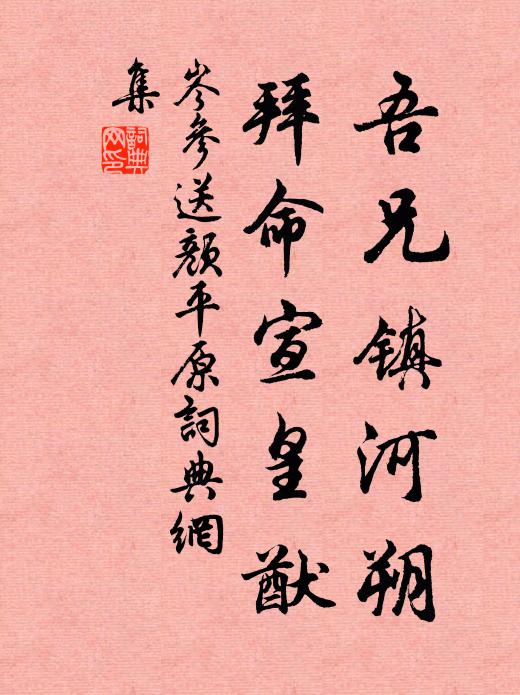 吾兄镇河朔
拜命宣皇猷
岑参送颜平原詞典網
集
詞典网印